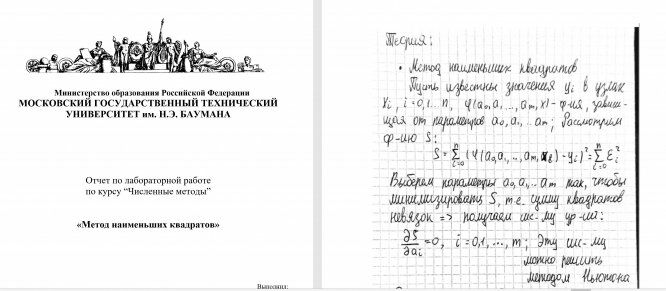 Министерство образования Российской Федерации
МОСКОВСКИЙ ГОСУДАРСТВЕННЫЙ ТЕХНИЧЕСКИЙ
УНИВЕРСИТЕТ им. Н.Э. БАУМАНА
Отчет по лабораторной работе
по курсу “Численные методы”
«Метод наименьших квадратов»
Выполнил:
Теория:
• Метод наименьших квадратов
Пусть известны значения yᵢ в узлах
xᵢ, i=0,1...n, φ(a₀,a₁,...,aₘ,x)- ф-ия, завися-
щая от параметров a₀,a₁...aₘ; Рассмотрим
ф-ию S:
S=∑ⁿᵢ₌₀(φ(a₀,a₁,...,aₘ,xᵢ)-yᵢ)²=∑ⁿᵢ₌₀εᵢ²
Выберем параметры a₀,a₁...aₘ так, чтобы
минимизировать S, т.е. сумму квадратов
невязок => получаем сис-му ур-ий:
∂S/∂aᵢ=0, i=0,1,...,m; Эту сис-му
можно решить
методом Ньютона